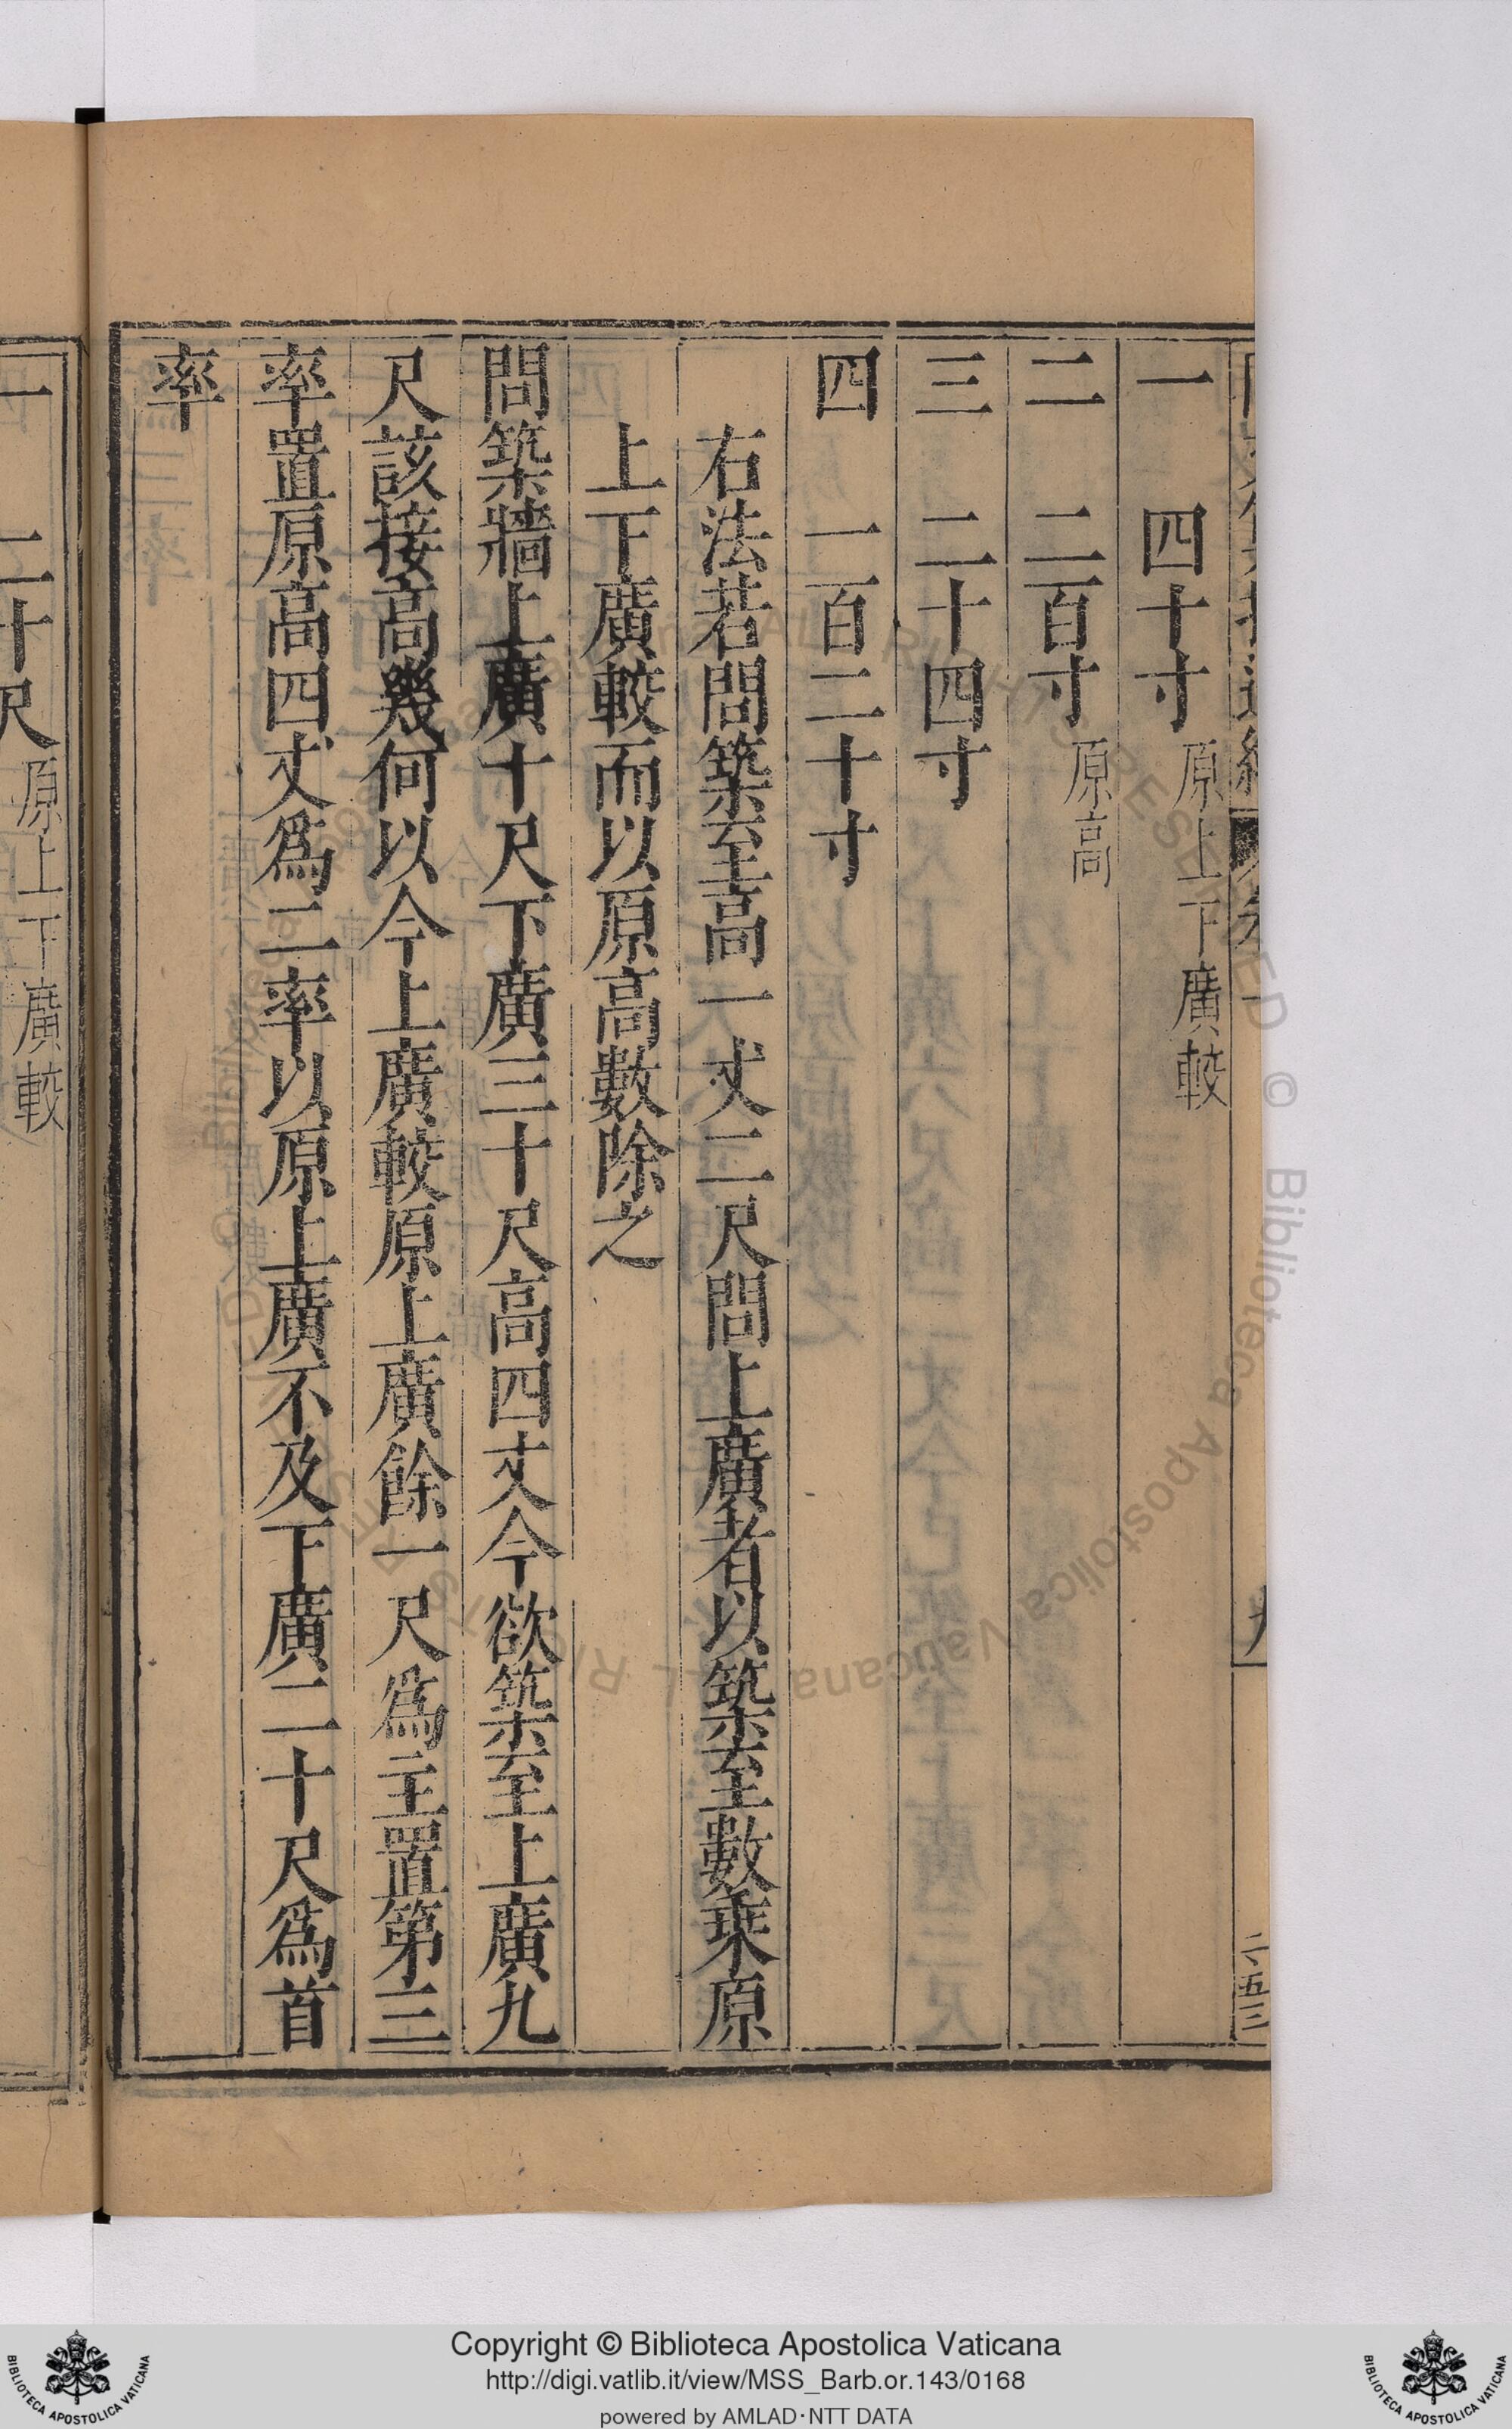 一 四十寸 原上下廣較
二 二百寸 原高
三 二十四寸
四 一百二十寸
右法若問築至高一丈二尺問上廣者以築至數乗原
上下廣較而以原高數除之
問築牆上廣十尺下廣三十尺高四丈今欲築至上廣九
尺該接高幾何以今上廣較原上廣餘一尺爲主置第三
率置原高四丈爲二率以原上廣不及下廣二十尺爲首
率
二五三
一 二十尺 原上下廣較
Copyright © Biblioteca Apostolica Vaticana
http://digi.vatlib.it/view/MSS_Barb.or.143/0168
powered by AMLAD·NTT DATA
BIBLIOTECA APOSTOLICA VATICANA
BIBLIOTECA APOSTOLICA VATICANA